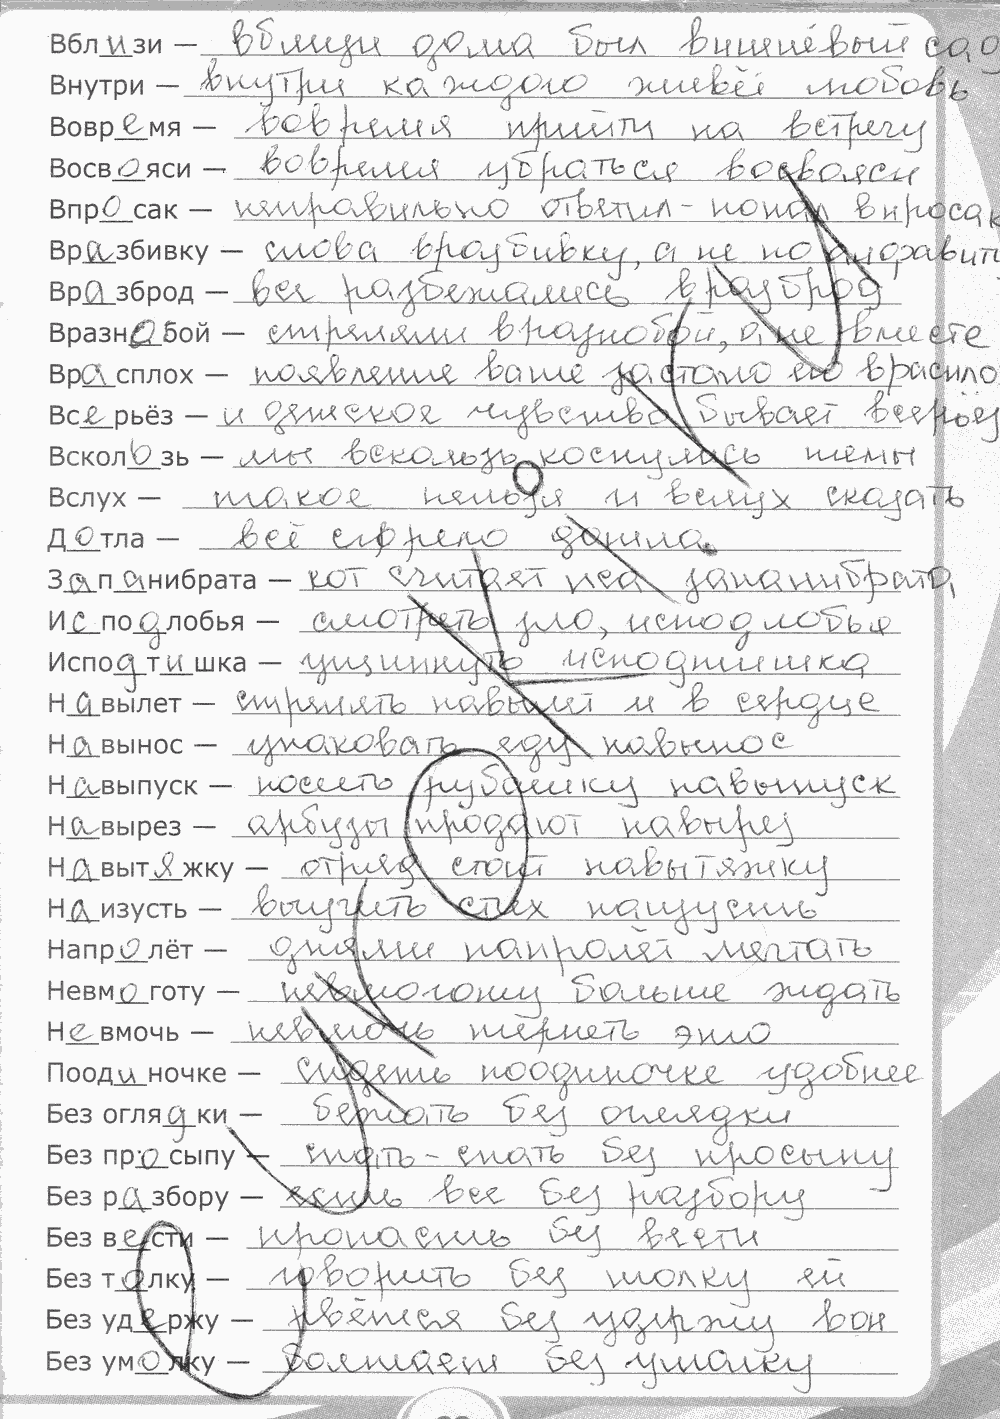 Вблизи — вблизи дома был вишнёвый сад
Внутри — внутри каждого живёт любовь
Вовремя — вовремя прийти на встречу
Восвояси — вовремя убраться восвояси
Впросак — неправильно ответил - попал впросак
Вразбивку — слова вразбивку, а не по алфавиту
Вразброд — все разбежались вразброд
Вразнобой — стреляли вразнобой, а не вместе
Врасплох — появление ваше застало его врасплох
Всерьёз — и детское чувство бывает всерьёз
Вскользь — мы вскользь коснулись темы
Вслух — такое нельзя и вслух сказать
Дотла — всё сгорело дотла.
Запанибрата — кот считает пса запанибрата
Исподлобья — смотреть зло, исподлобья
Исподтишка — ущипнуть исподтишка
Навылет — стрелять навылет и в сердце
Навынос — упаковать еду навынос
Навыпуск — носить рубашку навыпуск
Навырез — арбузы продают навырез
Навытяжку — отряд стоит навытяжку
Наизусть — выучить стих наизусть
Напролёт — днями напролёт мечтать
Невмоготу — невмоготу больше ждать
Невмочь — невмочь терпеть это
Поодиночке — сидеть поодиночке удобнее
Без оглядки — бежать без оглядки
Без просыпу — спать - спать без просыпу
Без разбору — есть все без разбору
Без вести — пропасть без вести
Без толку — говорить без толку ей
Без удержу — рвётся без удержу вон
Без умолку — болтает без умолку